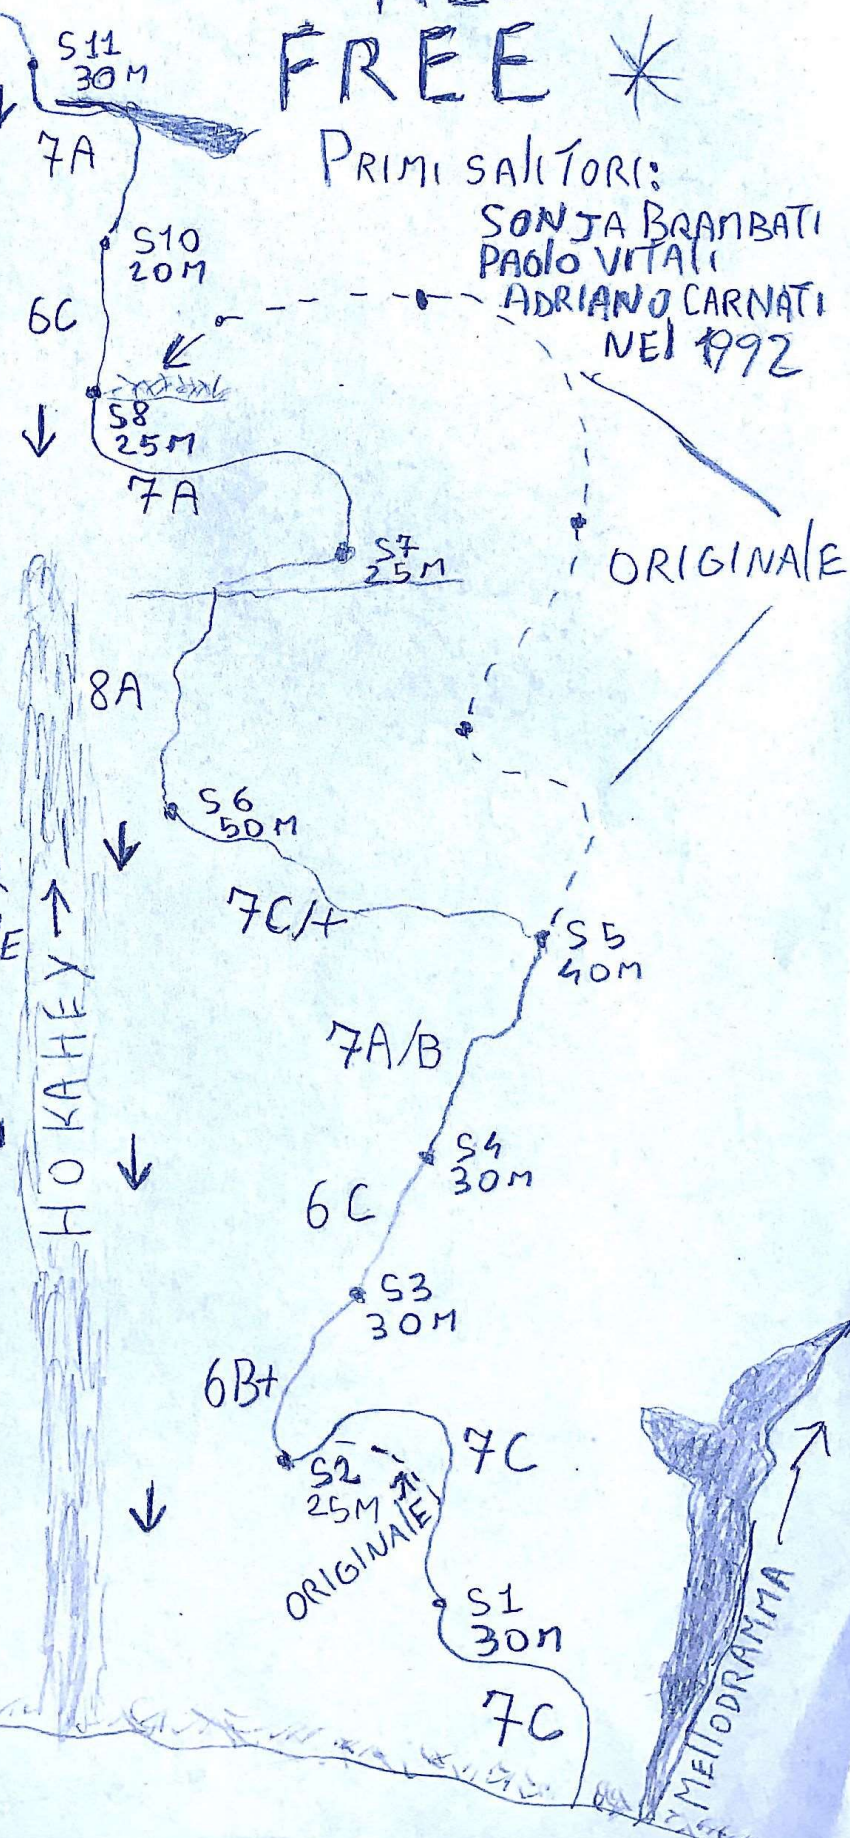 FREE *
PRIMI SALITORI:
SONJA BRAMBATI
PAOLO VITALI
ADRIANO CARNATI
NEL 1992
S11
30M
7A
S10
20M
6C
S8
25M
7A
S7
25M
ORIGINALE
8A
S6
50M
7C/+
S5
40M
E
7A/B
HOKAHEY
S4
30M
6C
S3
30M
6B+
7C
S2
25M
ORIGINALE
S1
30M
7C
MELLODRAMMA